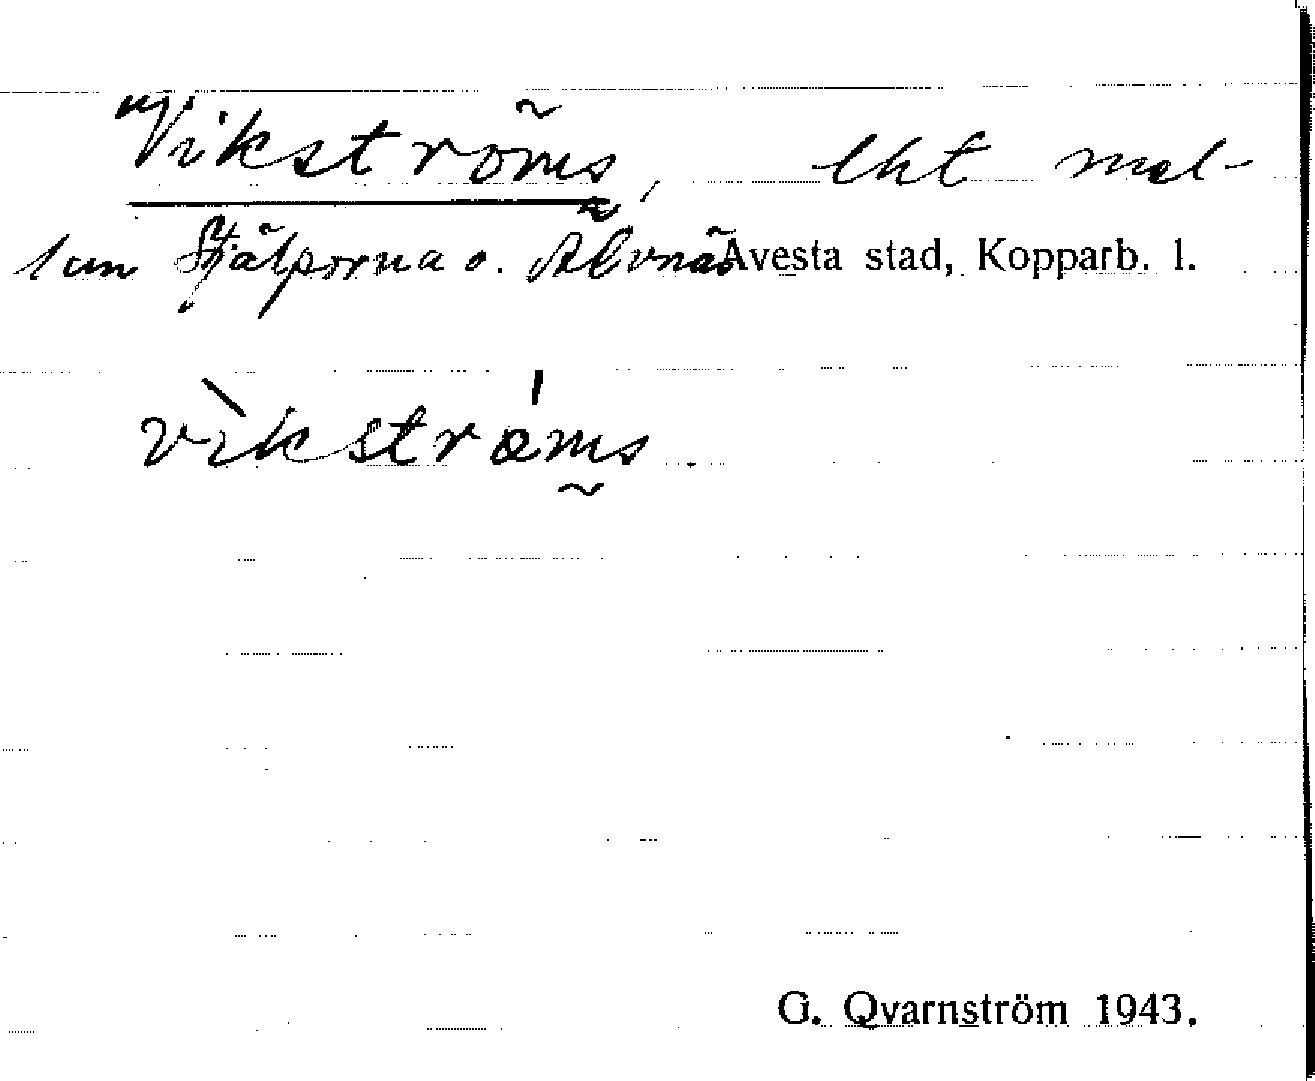 Vikströms, lht mel-
lan Stjälporna o. Älvnäs Avesta stad, Kopparb. l.
vìkstrǿms.
G. Qvarnström 1943.